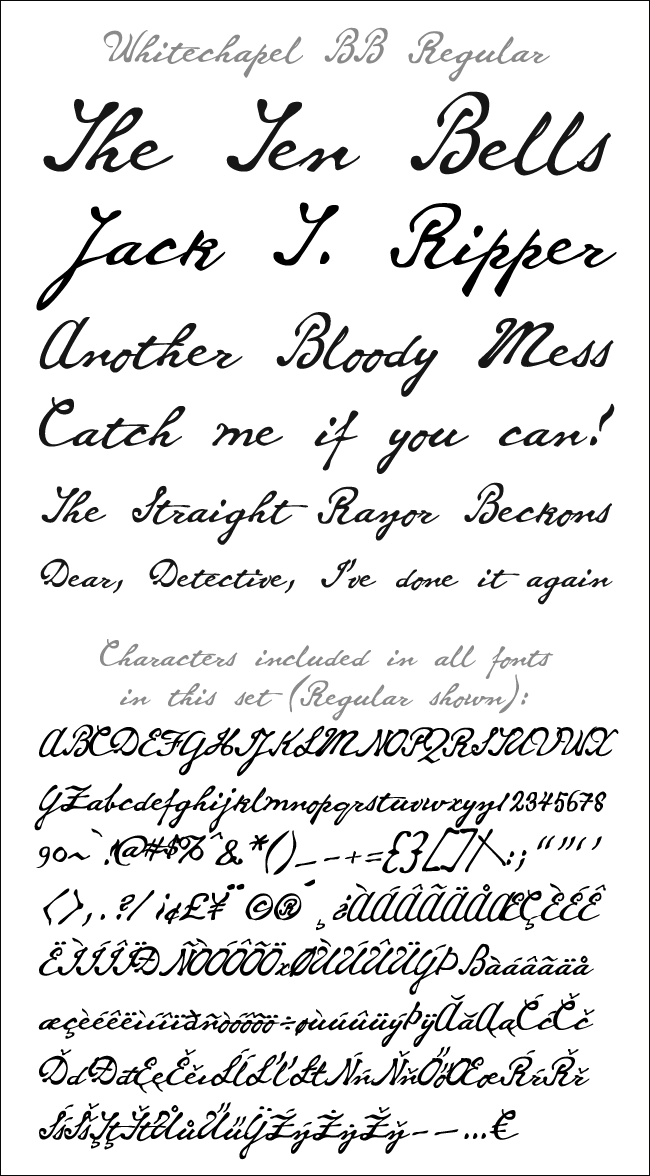 Whitechapel BB Regular
The Ten Bells
Jack T. Ripper
Another Bloody Mess
Catch me if you can!
The Straight Razor Beckons
Dear, Detective, I've done it again
Characters included in all fonts
in this set (Regular shown):
ABCDEFGHIJKLMNOPQRSTUVWX
YZabcdefghijklmnopqrstuvwxyz12345678
90~`!@#$%^&*()_-+={}[]|\:;“”"‘’
<>,.?/¡¢£¥¨©®¯¸¿ÀÁÂÃÄÅÆÇÈÉÊ
ËÌÍÎÏÐÑÒÓÔÕÖxØÙÚÛÜÝÞßàáâãäå
æçèéêëìíîïðñòóôõö÷øùúûüýþÿĂăĄąĆćČč
ĎďĐđĘęĚěıĹĺĽľŁłŃńŇňŐőŒœŔŕŘř
ŚśŠšŢţŤťŮůŰűŸŹźŻżŽž–—…€